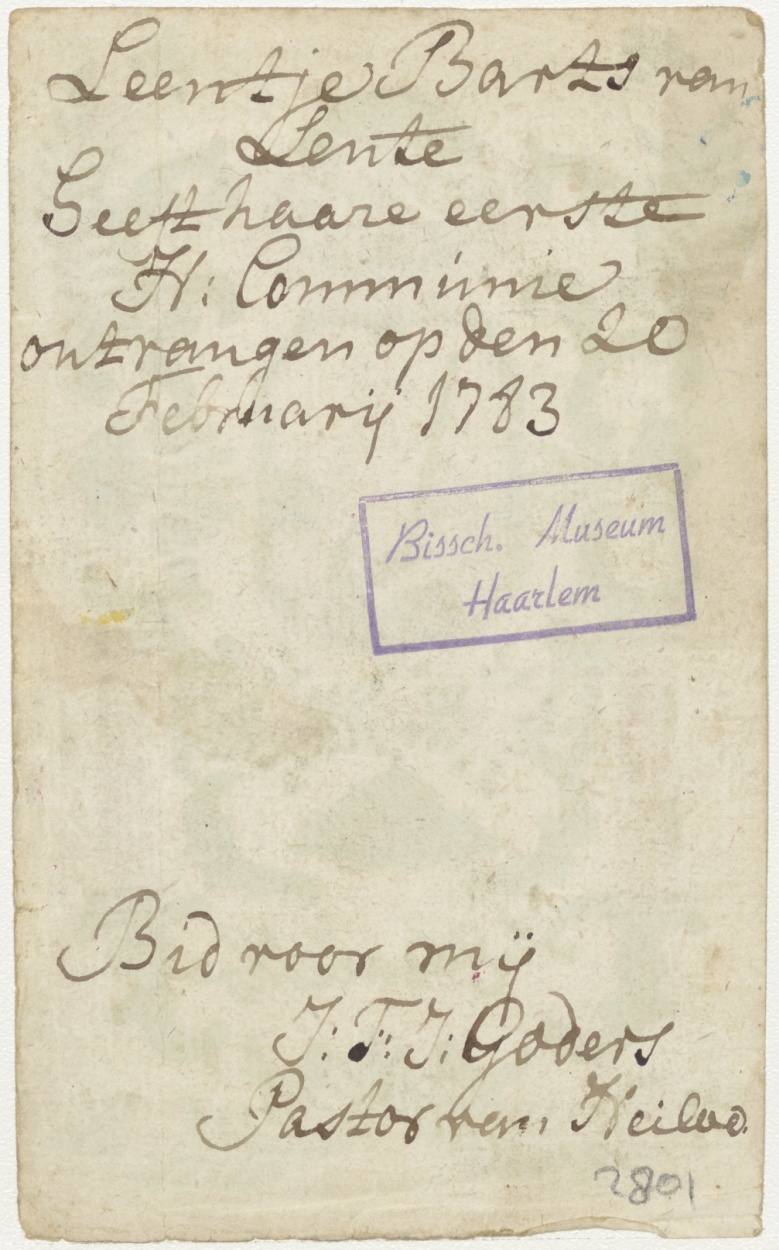 Leentje Barts van
Lente
Heeft haare eerste
H: Communie
ontvangen op den 20
Februarij 1783
Bissch. Museum
Haarlem
Bid voor mij
J: F: J: Goders
Pastor van Heiloo
2801